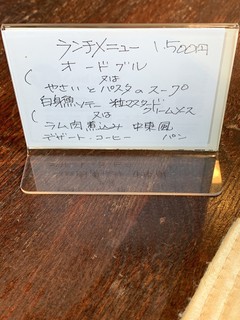 ランチメニュー 1.500円
オードブル
又は
やさいとパスタのスープ
白身魚ソテー 粒マスタードクリームソース
又は
ラム肉煮込み 中東風
デザート・コーヒー パン